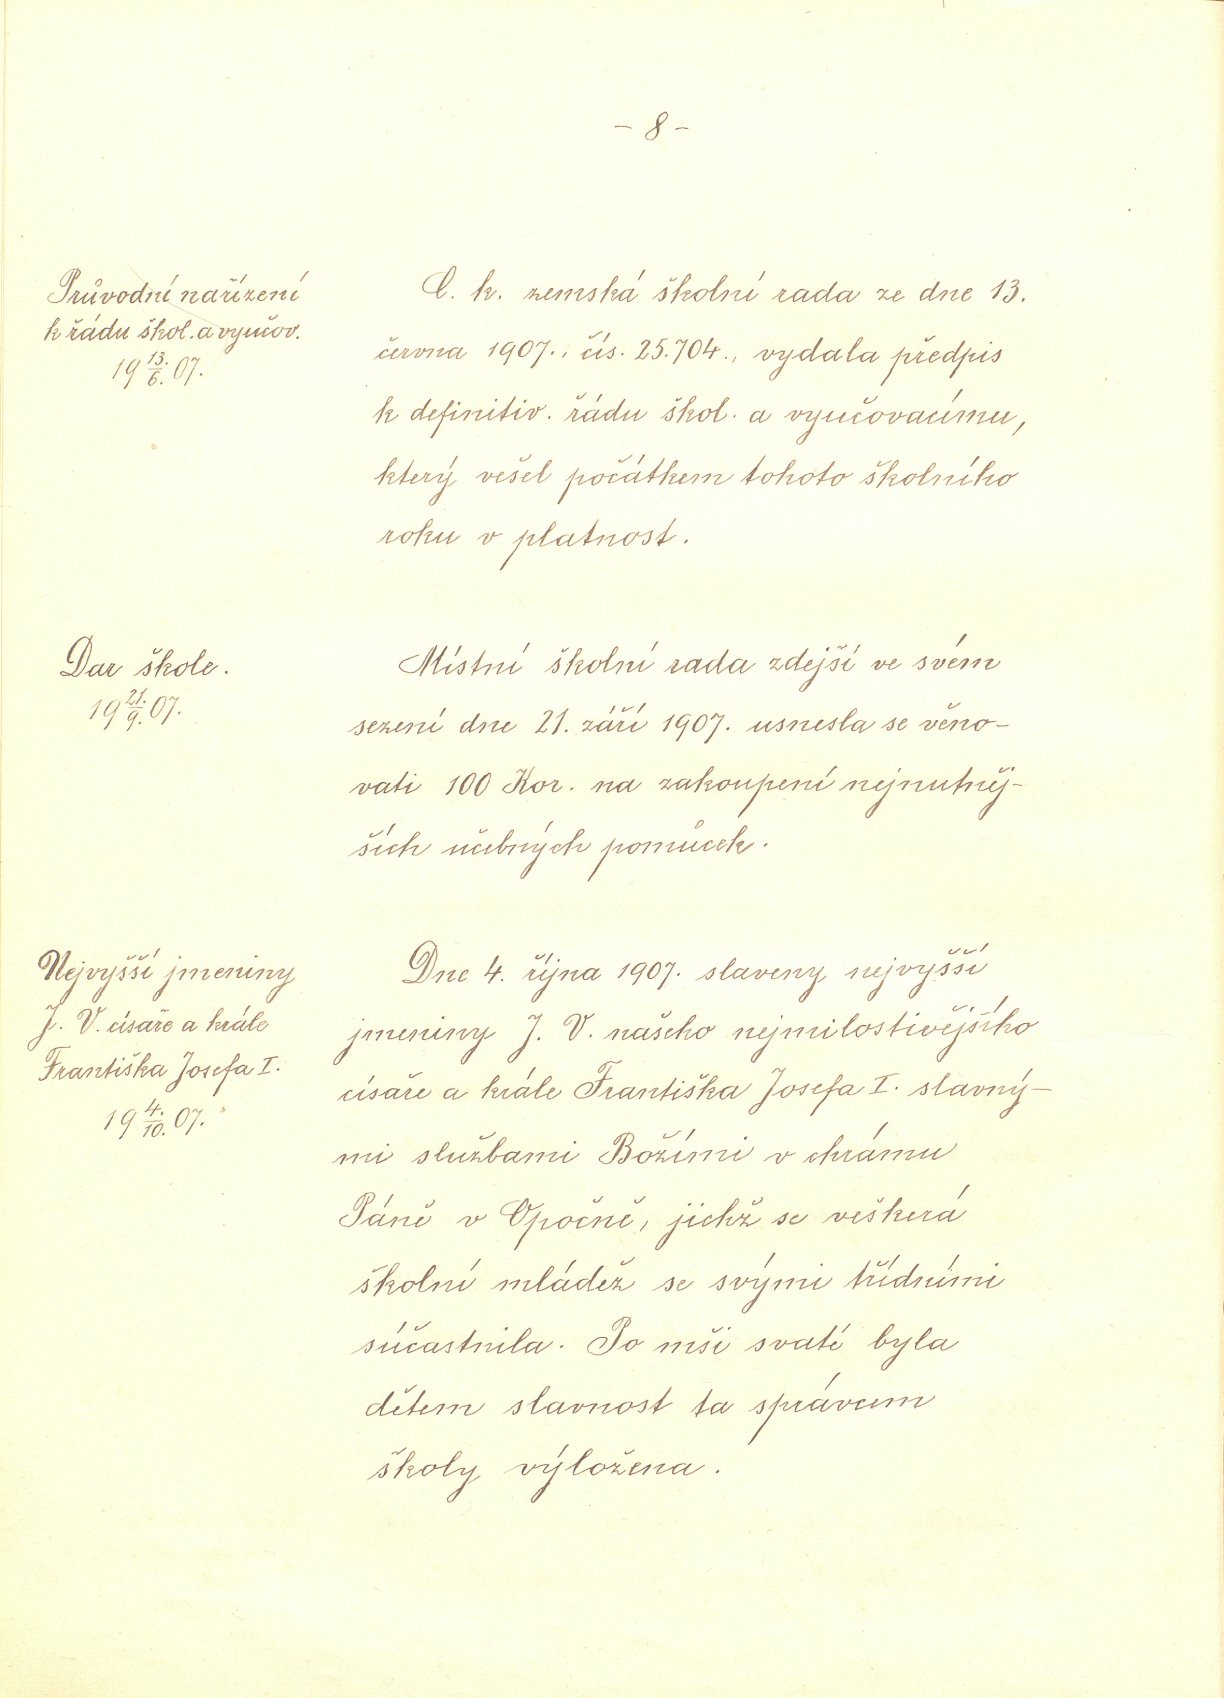 - 8 -
Průvodní nařízení
k řádu škol. a vyučov.
19 13./6. 07.
C. k. zemská školní rada ze dne 13.
června 1907., čís. 25.704., vydala předpis
k definitiv. řádu škol. a vyučovacímu,
který vešel počátkem tohoto školního
roku v platnost.
Dar škole.
19 21./9. 07.
Místní školní rada zdejší ve svém
sezení dne 21. září 1907. usnesla se věno-
vati 100 Kor. na zakoupení nejnutněj-
ších učebných pomůcek.
Nejvyšší jmeniny
J. V. císaře a krále
Františka Josefa I.
19 4./10. 07.
Dne 4. října 1907. slaveny nejvyšší
jmeniny J. V. našeho nejmilostivějšího
císaře a krále Františka Josefa I. slavný-
mi službami Božími v chrámu
Páně v Opočně, jichž se veškerá
školní mládež se svými třídními
súčastnila. Po mši svaté byla
dětem slavnost ta správcem
školy výložena.